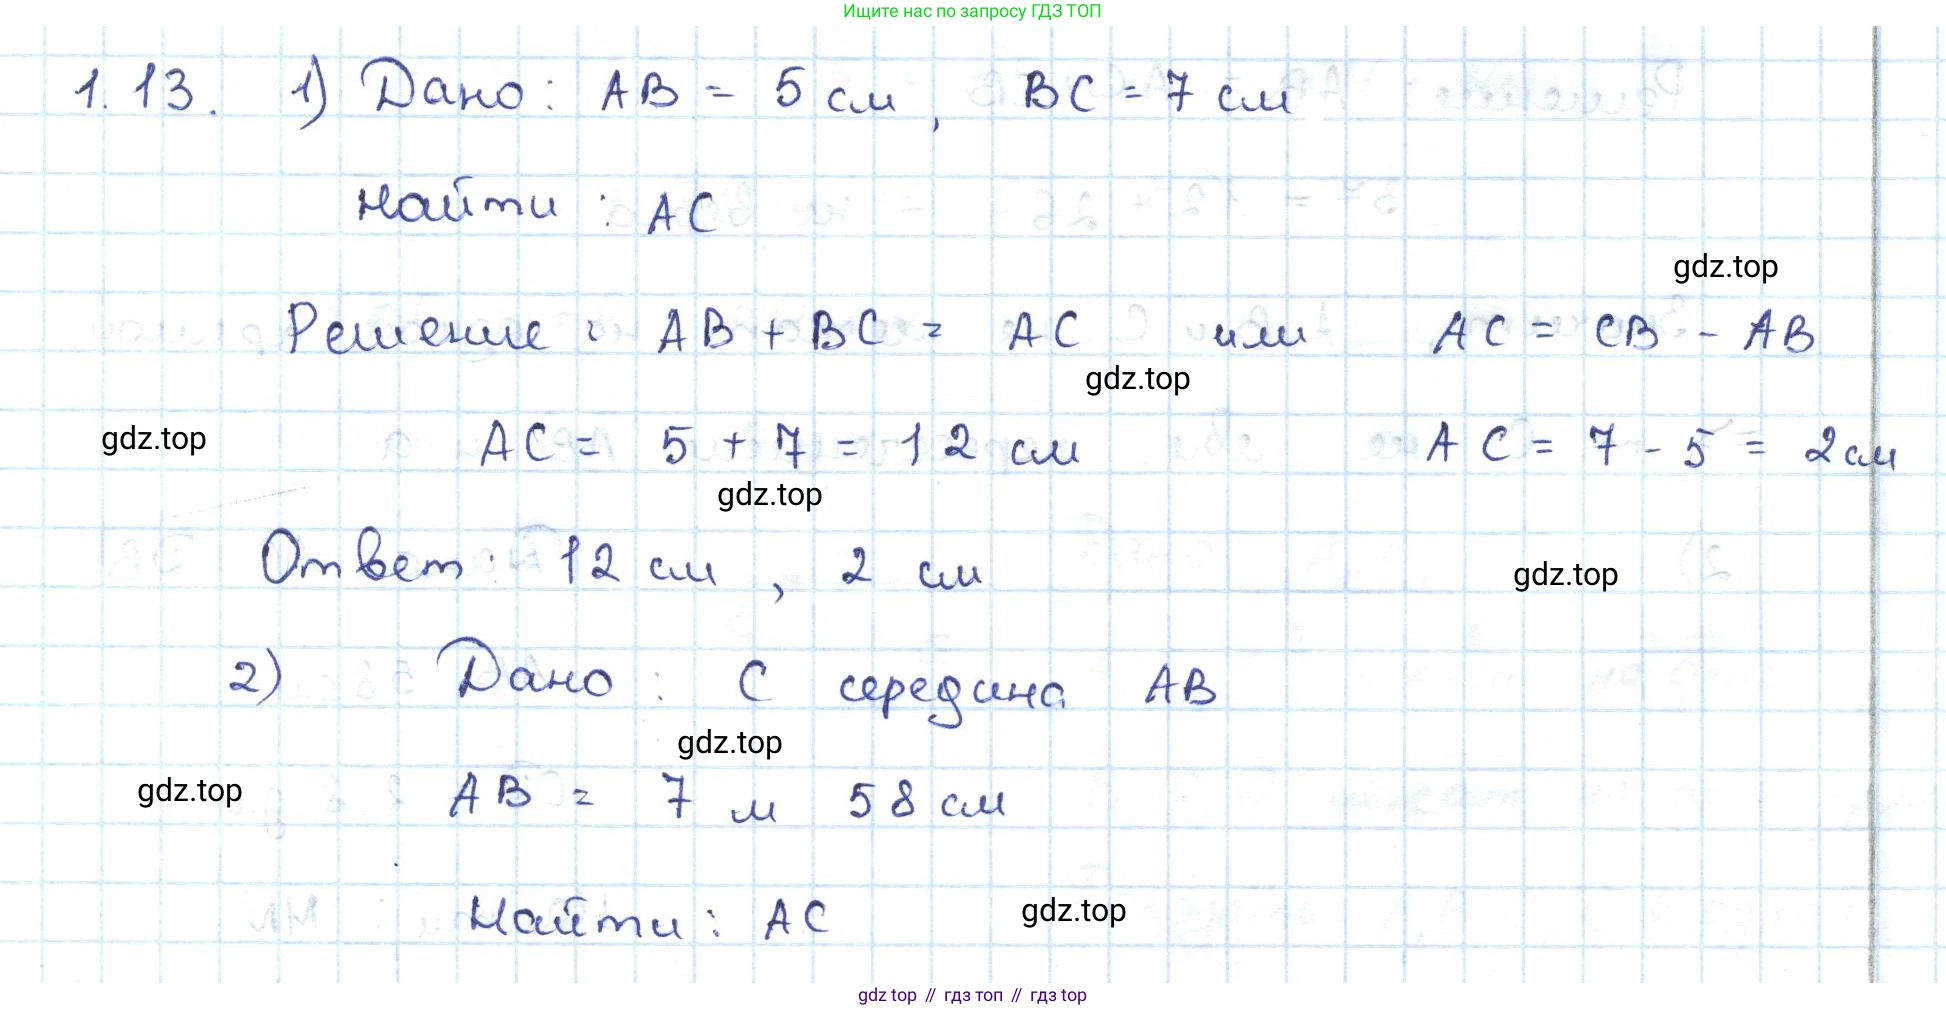 Ищите нас по запросу ГДЗ ТОП
1.13. 1) Дано: AB = 5 см, BC = 7 см
Найти: AC
gdz.top
Решение: AB + BC = AC или AC = CB - AB
gdz.top
gdz.top
AC = 5 + 7 = 12 см AC = 7 - 5 = 2 см
gdz.top
Ответ: 12 см, 2 см
gdz.top
2) Дано: C середина AB
gdz.top
gdz.top
AB = 7 м 58 см
Найти: AC
gdz.top
gdz top // гдз топ // гдз top